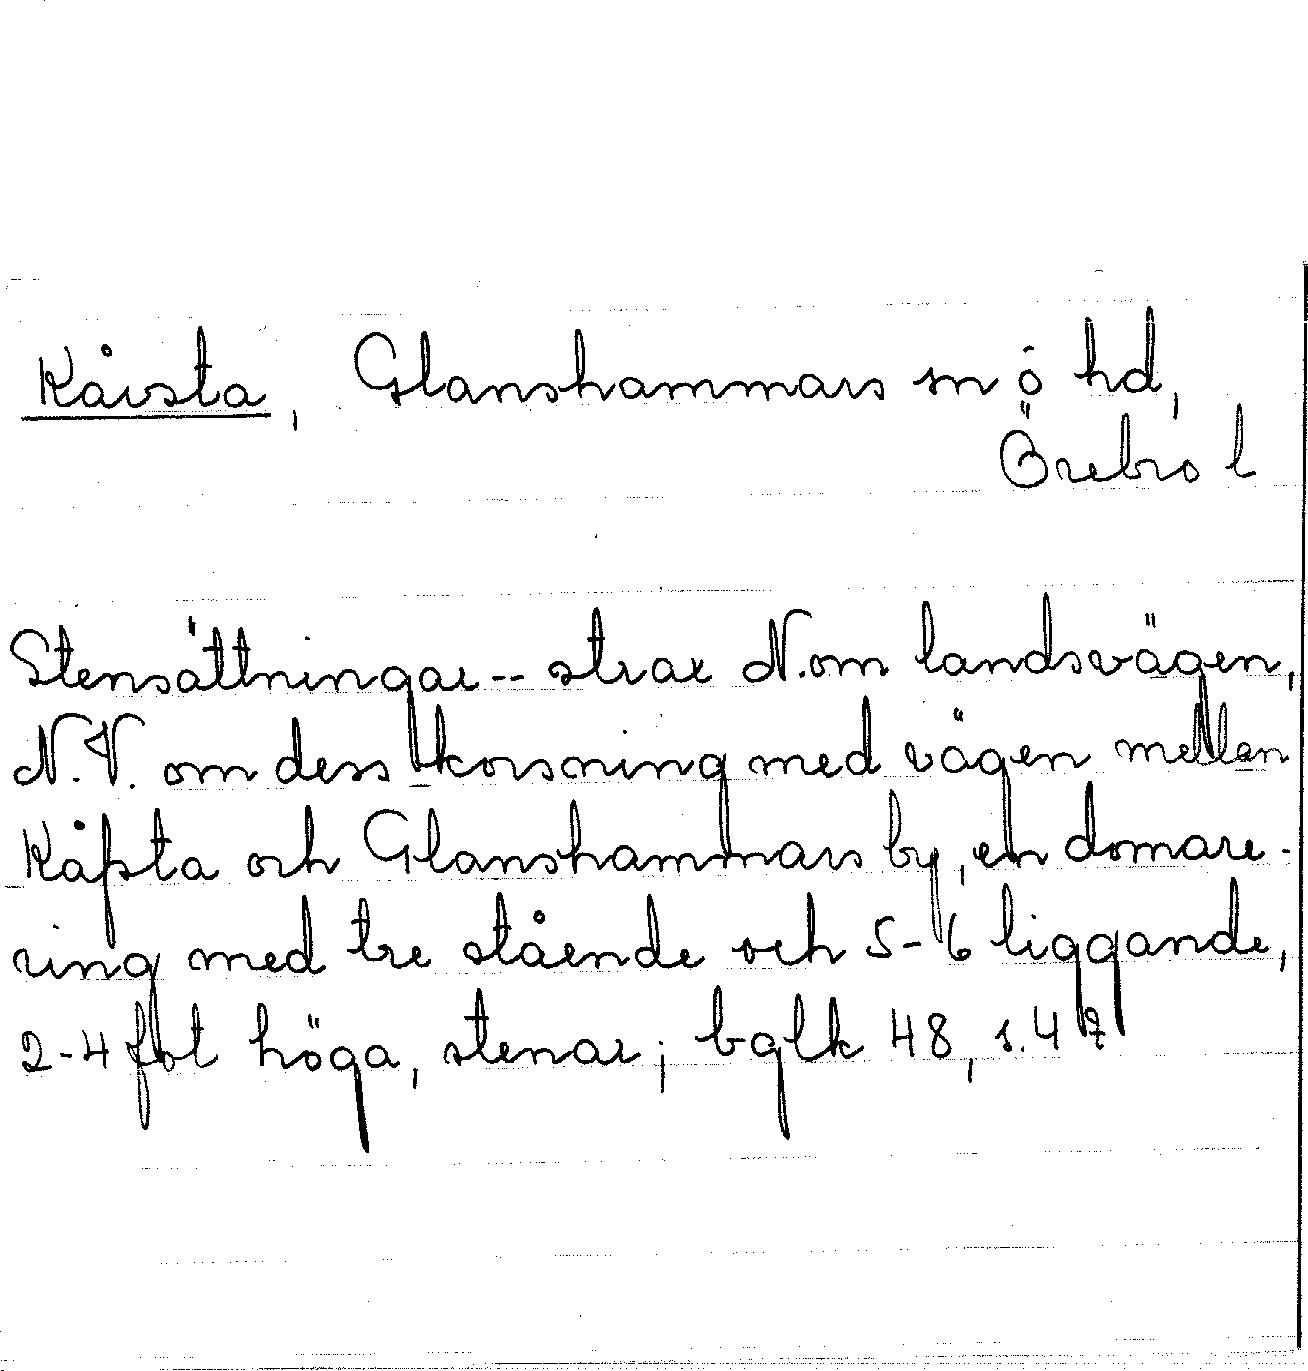 Kåvsta, Glanshammars sn ō hd,
Örebro l
Stensättningar -- strax N.om landsvägen,
N.V. om dess korsning med vägen mellan
Kåpsta och Glanshammars by, en domare-
ring med tre stående och 5-6 liggande,
2-4 fot höga, stenar; bglk 48, s.47